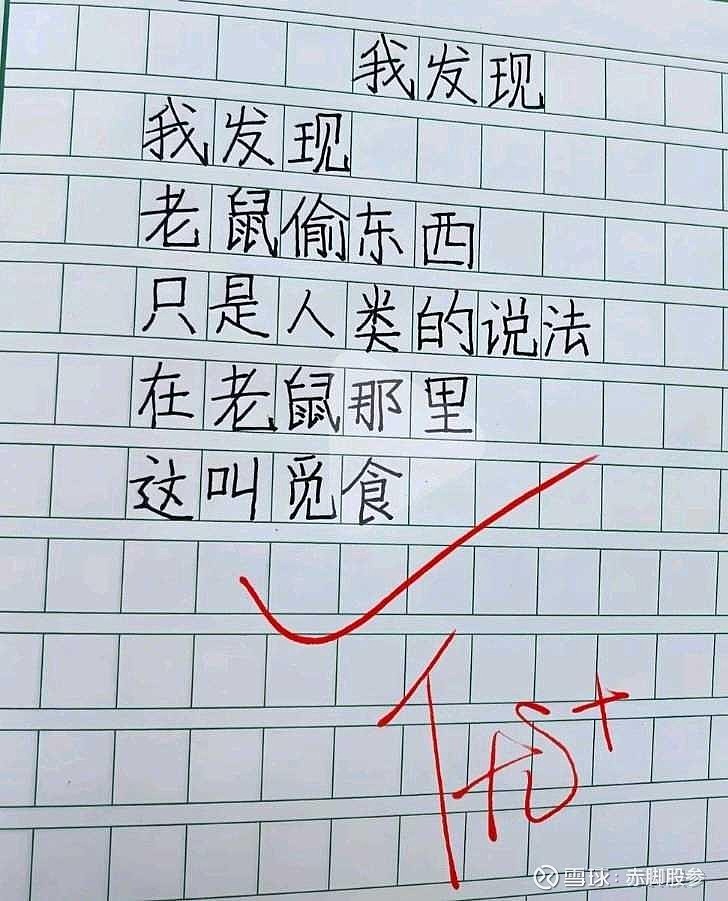 我发现
我发现
老鼠偷东西
只是人类的说法
在老鼠那里
这叫觅食
雪球：赤脚股参